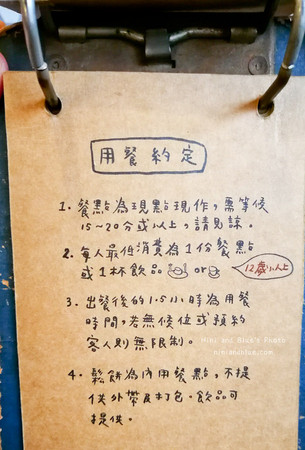 用餐約定
1. 餐點為現點現作，需等候
15~20分或以上，請見諒。
2. 每人最低消費為1份餐點
或1杯飲品 or
12歲以上
3. 出餐後的1.5小時為用餐
時間，若無候位或預約
客人則無限制。
Mika and Bibi's Photo
ninianntea.com
4. 鬆餅為內用餐點，不提
供外帶及打包。飲品可
提供。